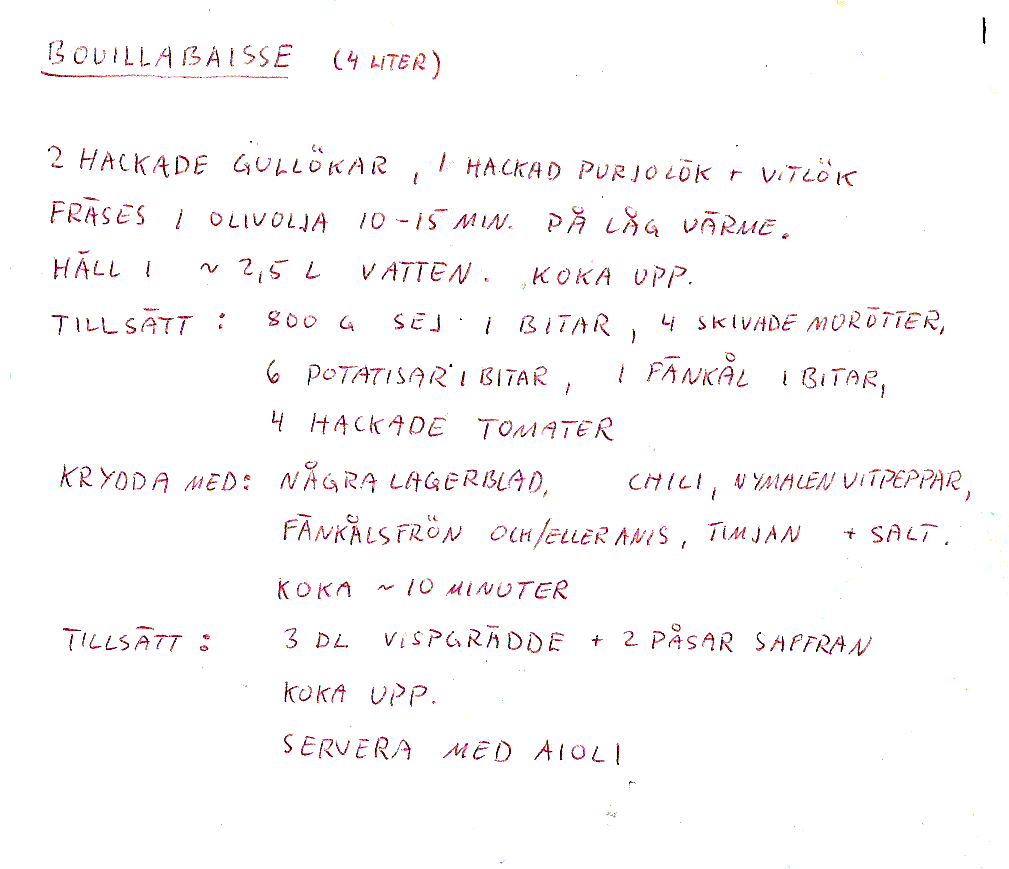 1
BOUILLABAISSE (4 LITER)
2 HACKADE GULLÖKAR, 1 HACKAD PURJOLÖK + VITLÖK
FRÄSES I OLIVOLJA 10-15 MIN. PÅ LÅG VÄRME.
HÄLL I ~ 2,5 L VATTEN. KOKA UPP.
TILLSÄTT: 800 G SEJ I BITAR, 4 SKIVADE MORÖTTER,
6 POTATISAR I BITAR, 1 FÄNKÅL I BITAR,
4 HACKADE TOMATER
KRYDDA MED: NÅGRA LAGERBLAD, CHILI, NYMALEN VITPEPPAR,
FÄNKÅLSFRÖN OCH/ELLER ANIS, TIMJAN + SALT.
KOKA ~ 10 MINUTER
TILLSÄTT: 3 DL VISPGRÄDDE + 2 PÅSAR SAFFRAN
KOKA UPP.
SERVERA MED AIOLI